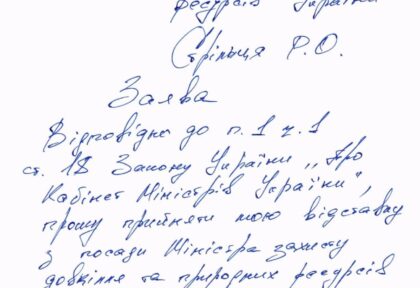 ресурсів України
Стрільця Р.О.
Заява
Відповідно до п.1 ч.1
ст. 18 Закону України „Про
Кабінет Міністрів України",
прошу прийняти мою відставку
з посади Міністра захисту
довкілля та природних ресурсів